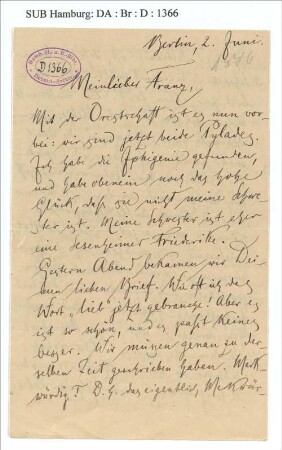 SUB Hamburg: DA : Br : D : 1366
Berlin, 2. Juni.
1876
D 1366
Mein lieber Franz,
Mit der Orestschaft ist es nun vor-
bei: wir sind jetzt beide Pylades.
Ich habe die Iphigenie gefunden,
und habe obenein noch das hohe
Glück, daß sie nicht meine Schwe-
ster ist. Meine Schwester ist eher
eine Sesenheimer Friederike.
Gestern Abend bekamen wir Dei-
nen lieben Brief. Wie oft ich das
Wort „lieb" jetzt gebrauche! Aber es
ist so schön, und es paßt keines
besser. Wir müssen genau zu der
selben Zeit geschrieben haben. Merk-
würdig! D. h. das eigentlich Merkwür-